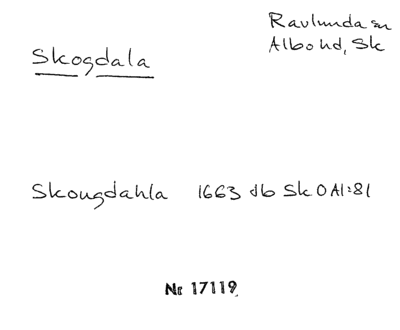 Skogdala
Ravlunda sn
Albo hd, Sk
Skougdahla 1663 db Sk O AI:81
Nr 17119